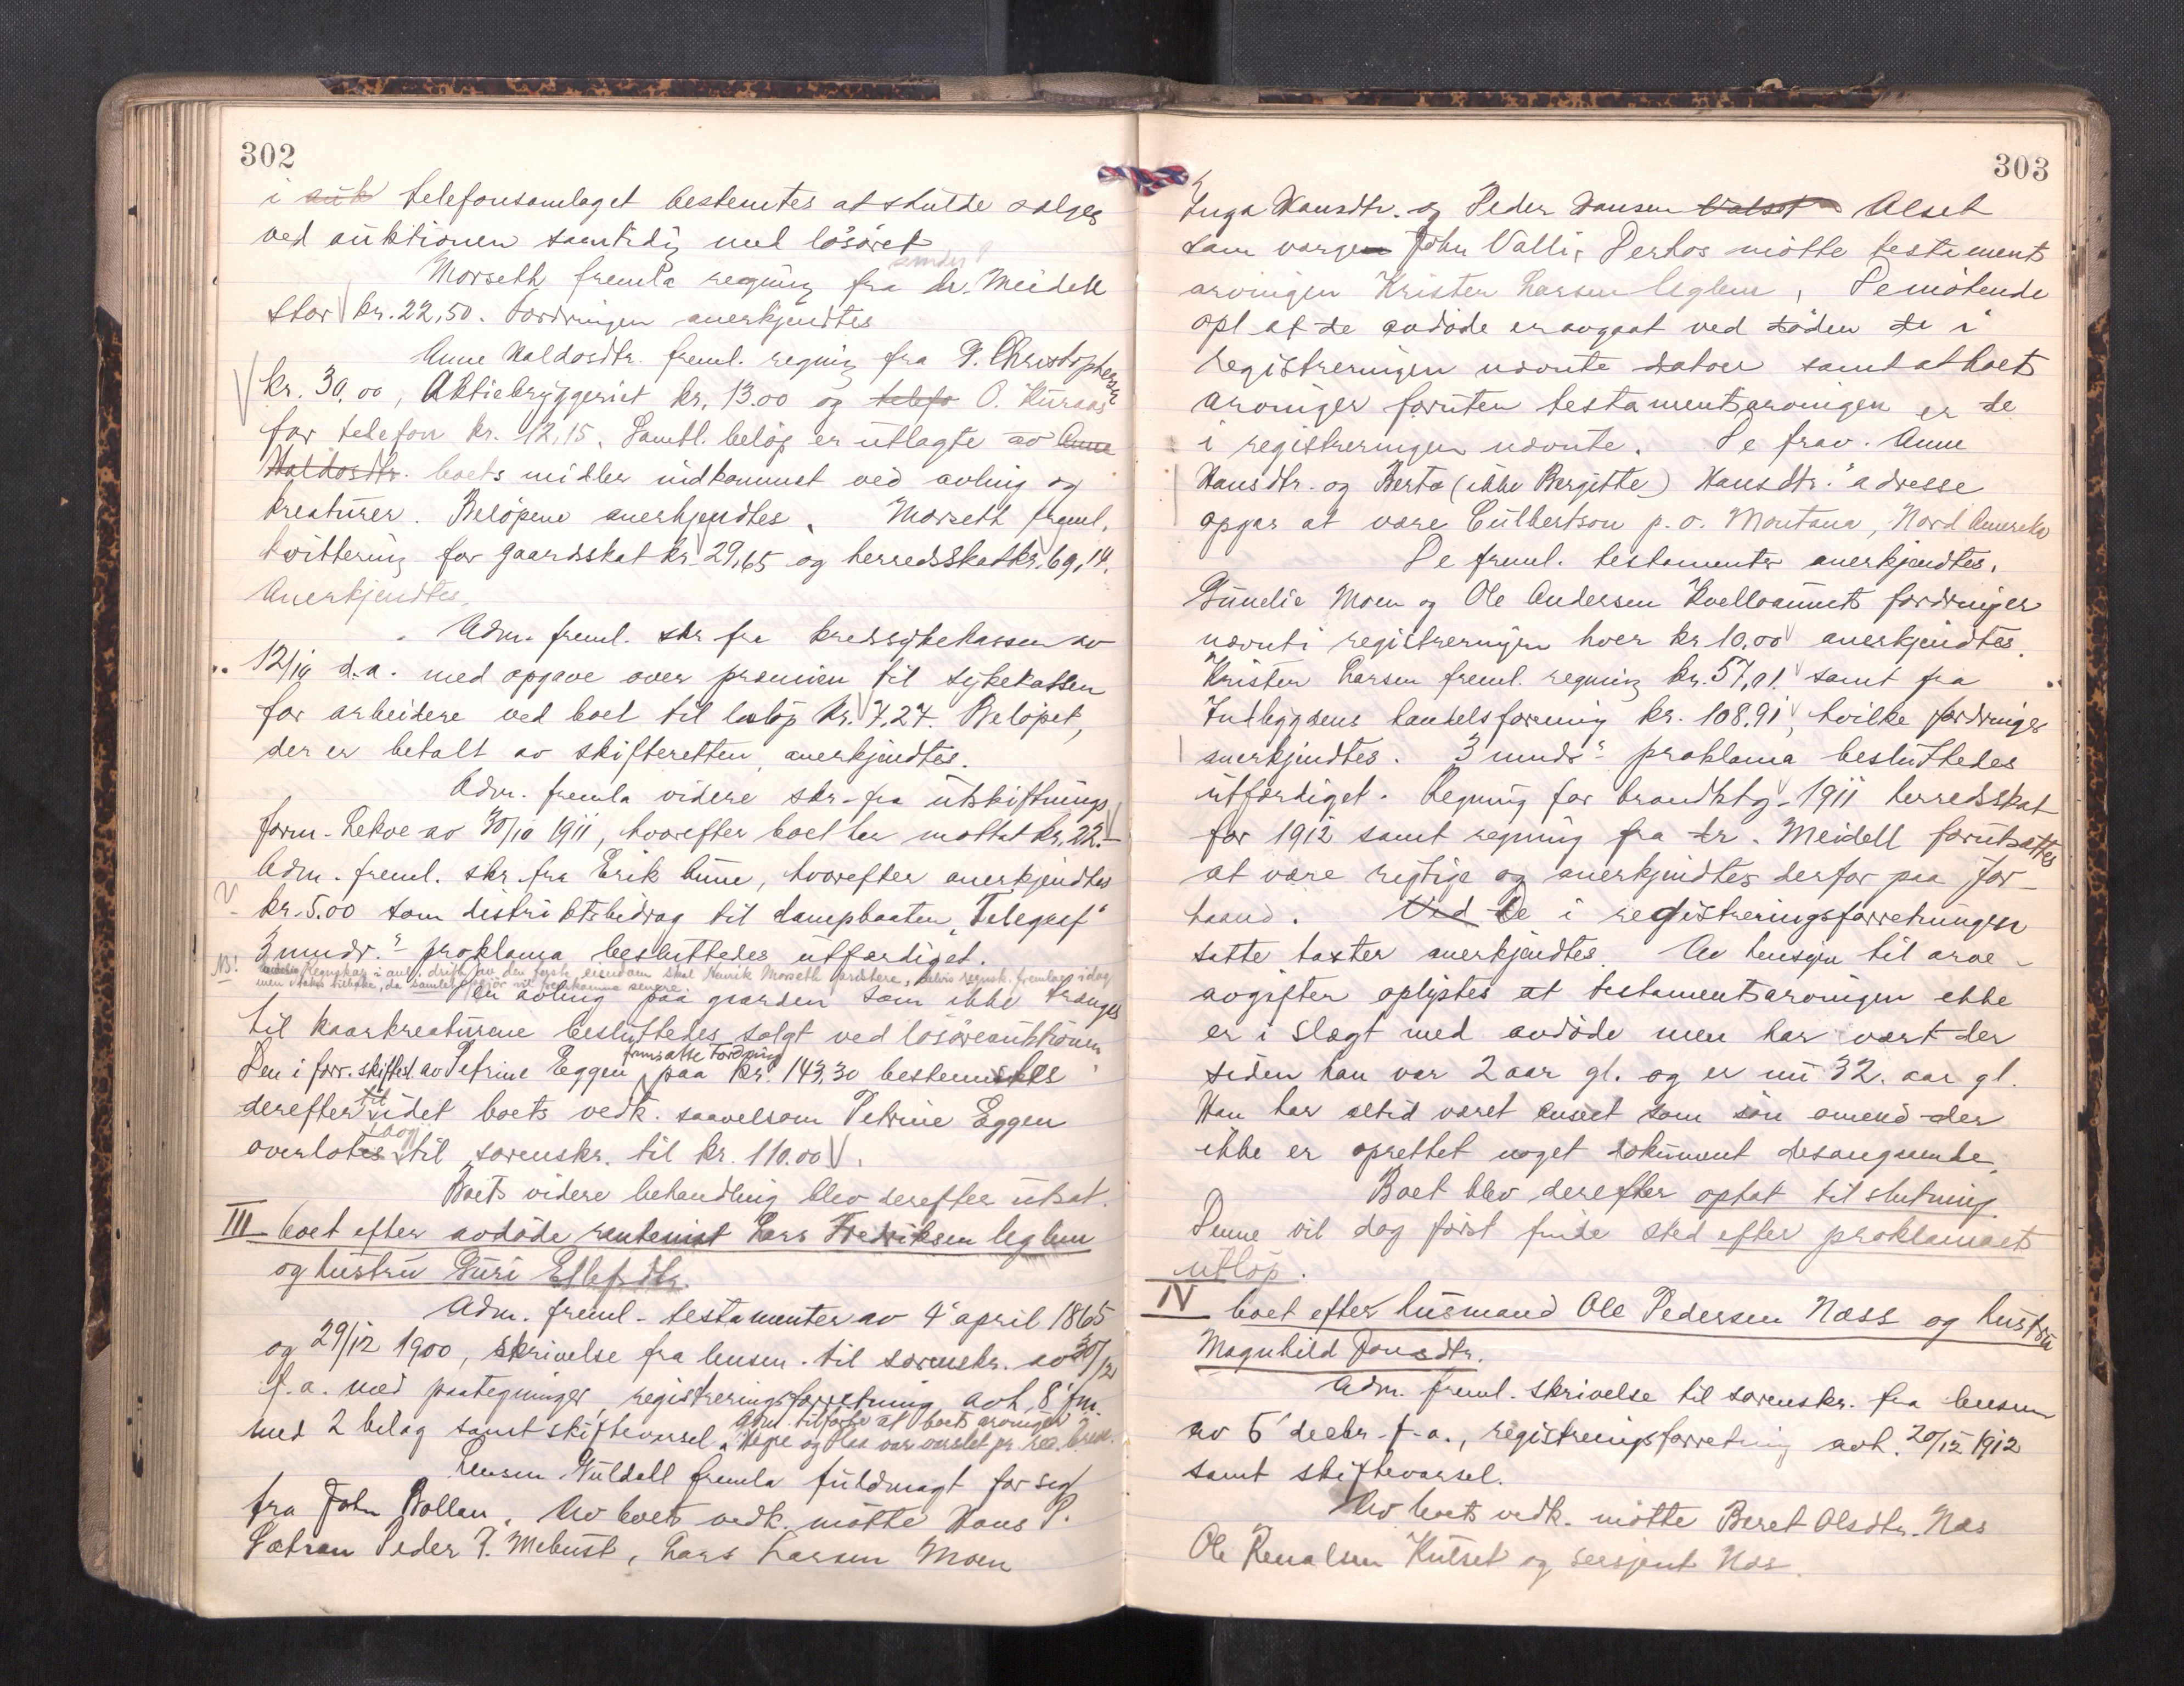 302
i auk telefonsamlaget bestemtes at skulde sælges
ved auktionen samtidig med løsøret
Morseth fremla regning fra dr. Meidell
stor kr. 22,50. Fordringen anerkjendtes
Anne Haldosdtr. freml. regning fra P. Christophersen
kr. 30,00, Aktiebryggeriet kr. 13.00 og telefo O. Kuraas
for telefon kr. 12,15. Samtl. beløp er utlagte av Anne
Haldosdtr. boets midler indkommet ved avling og
kreaturer. Beløpene anerkjendtes. Morseth freml.
kvittering for gaardsskat kr. 29,65 og herredsskat kr. 69,14.
Anerkjendtes.
Adm. freml. skr fra kredssykekassen av
12/10 d.a. med opgave over præmien til sykekassen
for arbeidere ved boet til beløp kr. 7,27. Beløpet,
der er betalt av skifteretten, anerkjendtes.
Adm. fremla videre skr. fra utskiftnings
form. Lekve av 30/10 1911, hvorefter boet har mottat kr. 22.-
Adm. freml. skr. fra Erik Aune, hvorefter anerkjendtes
kr. 5.00 som distriktsbidrag til dampbaaten „Telegraf"
3 mndr.s proklama besluttedes utfærdiget.
NB! Regnskap i anl. drift av den faste eiendom skal Henrik Morseth fremlægge, delvis regnsk. fremlagt idag
men tilbake, da samlet opgjør vil fremkomme senere.
Den avling paa gaarden som ikke trænges
til kaarkreaturene besluttedes solgt ved løsøreauktionen
Den i forr. skiftesl. av Petrine Eggen fremsatte fordring paa kr. 143,30 bestemtes
derefter til idet boets vedk. saavelsom Petrine Eggen
overlotes dog til sorenskr. til kr. 110.00.
Boets videre behandling blev derefter utsat.
III boet efter avdøde rentenist Lars Fredriksen Uglem
og hustru Guri Ellefsdtr.
Adm. freml. testamenter av 4' april 1865
og 29/12 1900, skrivelse fra lensm. til sorenskr. av 30/12
f.a. med paategninger, registreringsforretning avh. 8' fm.
med 2 bilag samt skiftevarsel. Adm. tilføier at boets arvinger
Hegre og Aas var varslet pr. rec. brev.
Lensm. Guldall fremla fuldmagt for sig
fra John Bollan. Av boets vedk. møtte Hans P.
Sætran Peder J. Mebust, Lars Larsen Moen
303
Inga Hansdtr. og Peder Hansen Valset Alset
som verge John Valli. Derhos møtte testaments
arvingen Kristen Larsen Uglem. De møtende
opl at de avdøde er avgaat ved døden de i
registreringen nævnte datoer samt at boets
arvinger foruten testamentsarvingen er de
i registreringen nævnte. De frav. Anne
Hansdtr. og Berta (ikke Bergitte) Hansdtr.s adresse
opgas at være Culbertson p.o. Montana, Nord Amerika
De freml. testamenter anerkjendtes.
Gunelie Moen og Ole Andersen Kvellvannets fordringer
nævnt i registreringen hver kr 10.00 anerkjendtes.
Kristen Larsen freml. regning kr. 57,01. samt fra
Indbygdens handelsforening kr. 108.91, hvilke fordringer
anerkjendtes. 3 mndrs proklama besluttedes
utfærdiget. Regning for brandktg. 1911 herredsskat
for 1912 samt regning fra dr. Meidell forutsattes
at være rigtige og anerkjendtes derfor paa for-
haand. Ved De i registreringsforretningen
satte takster anerkjendtes. Av hensyn til arve-
avgiften oplystes at testamentsarvingen ikke
er i slægt med avdøde men har vært der
siden han var 2 aar gl. og er nu 32. aar gl.
Han har altid været anseet som søn omend der
ikke er oprettet noget dokument desangaaende.
Boet blev derefter optat til slutning.
Denne vil dog først finde sted efter proklamaets
utløp.
IV boet efter husmand Ole Pedersen Næss og hustru
Magnhild Jonsdtr.
Adm. freml. skrivelse til sorenskr. fra lensm
av 5' decbr. f.a., registreringsforretning avh. 20/12 1912
samt skiftevarsel.
Av boets vedk. møtte Beret Olsdtr. Næs
Ole Renalsen Kulset og sersjent Næs.